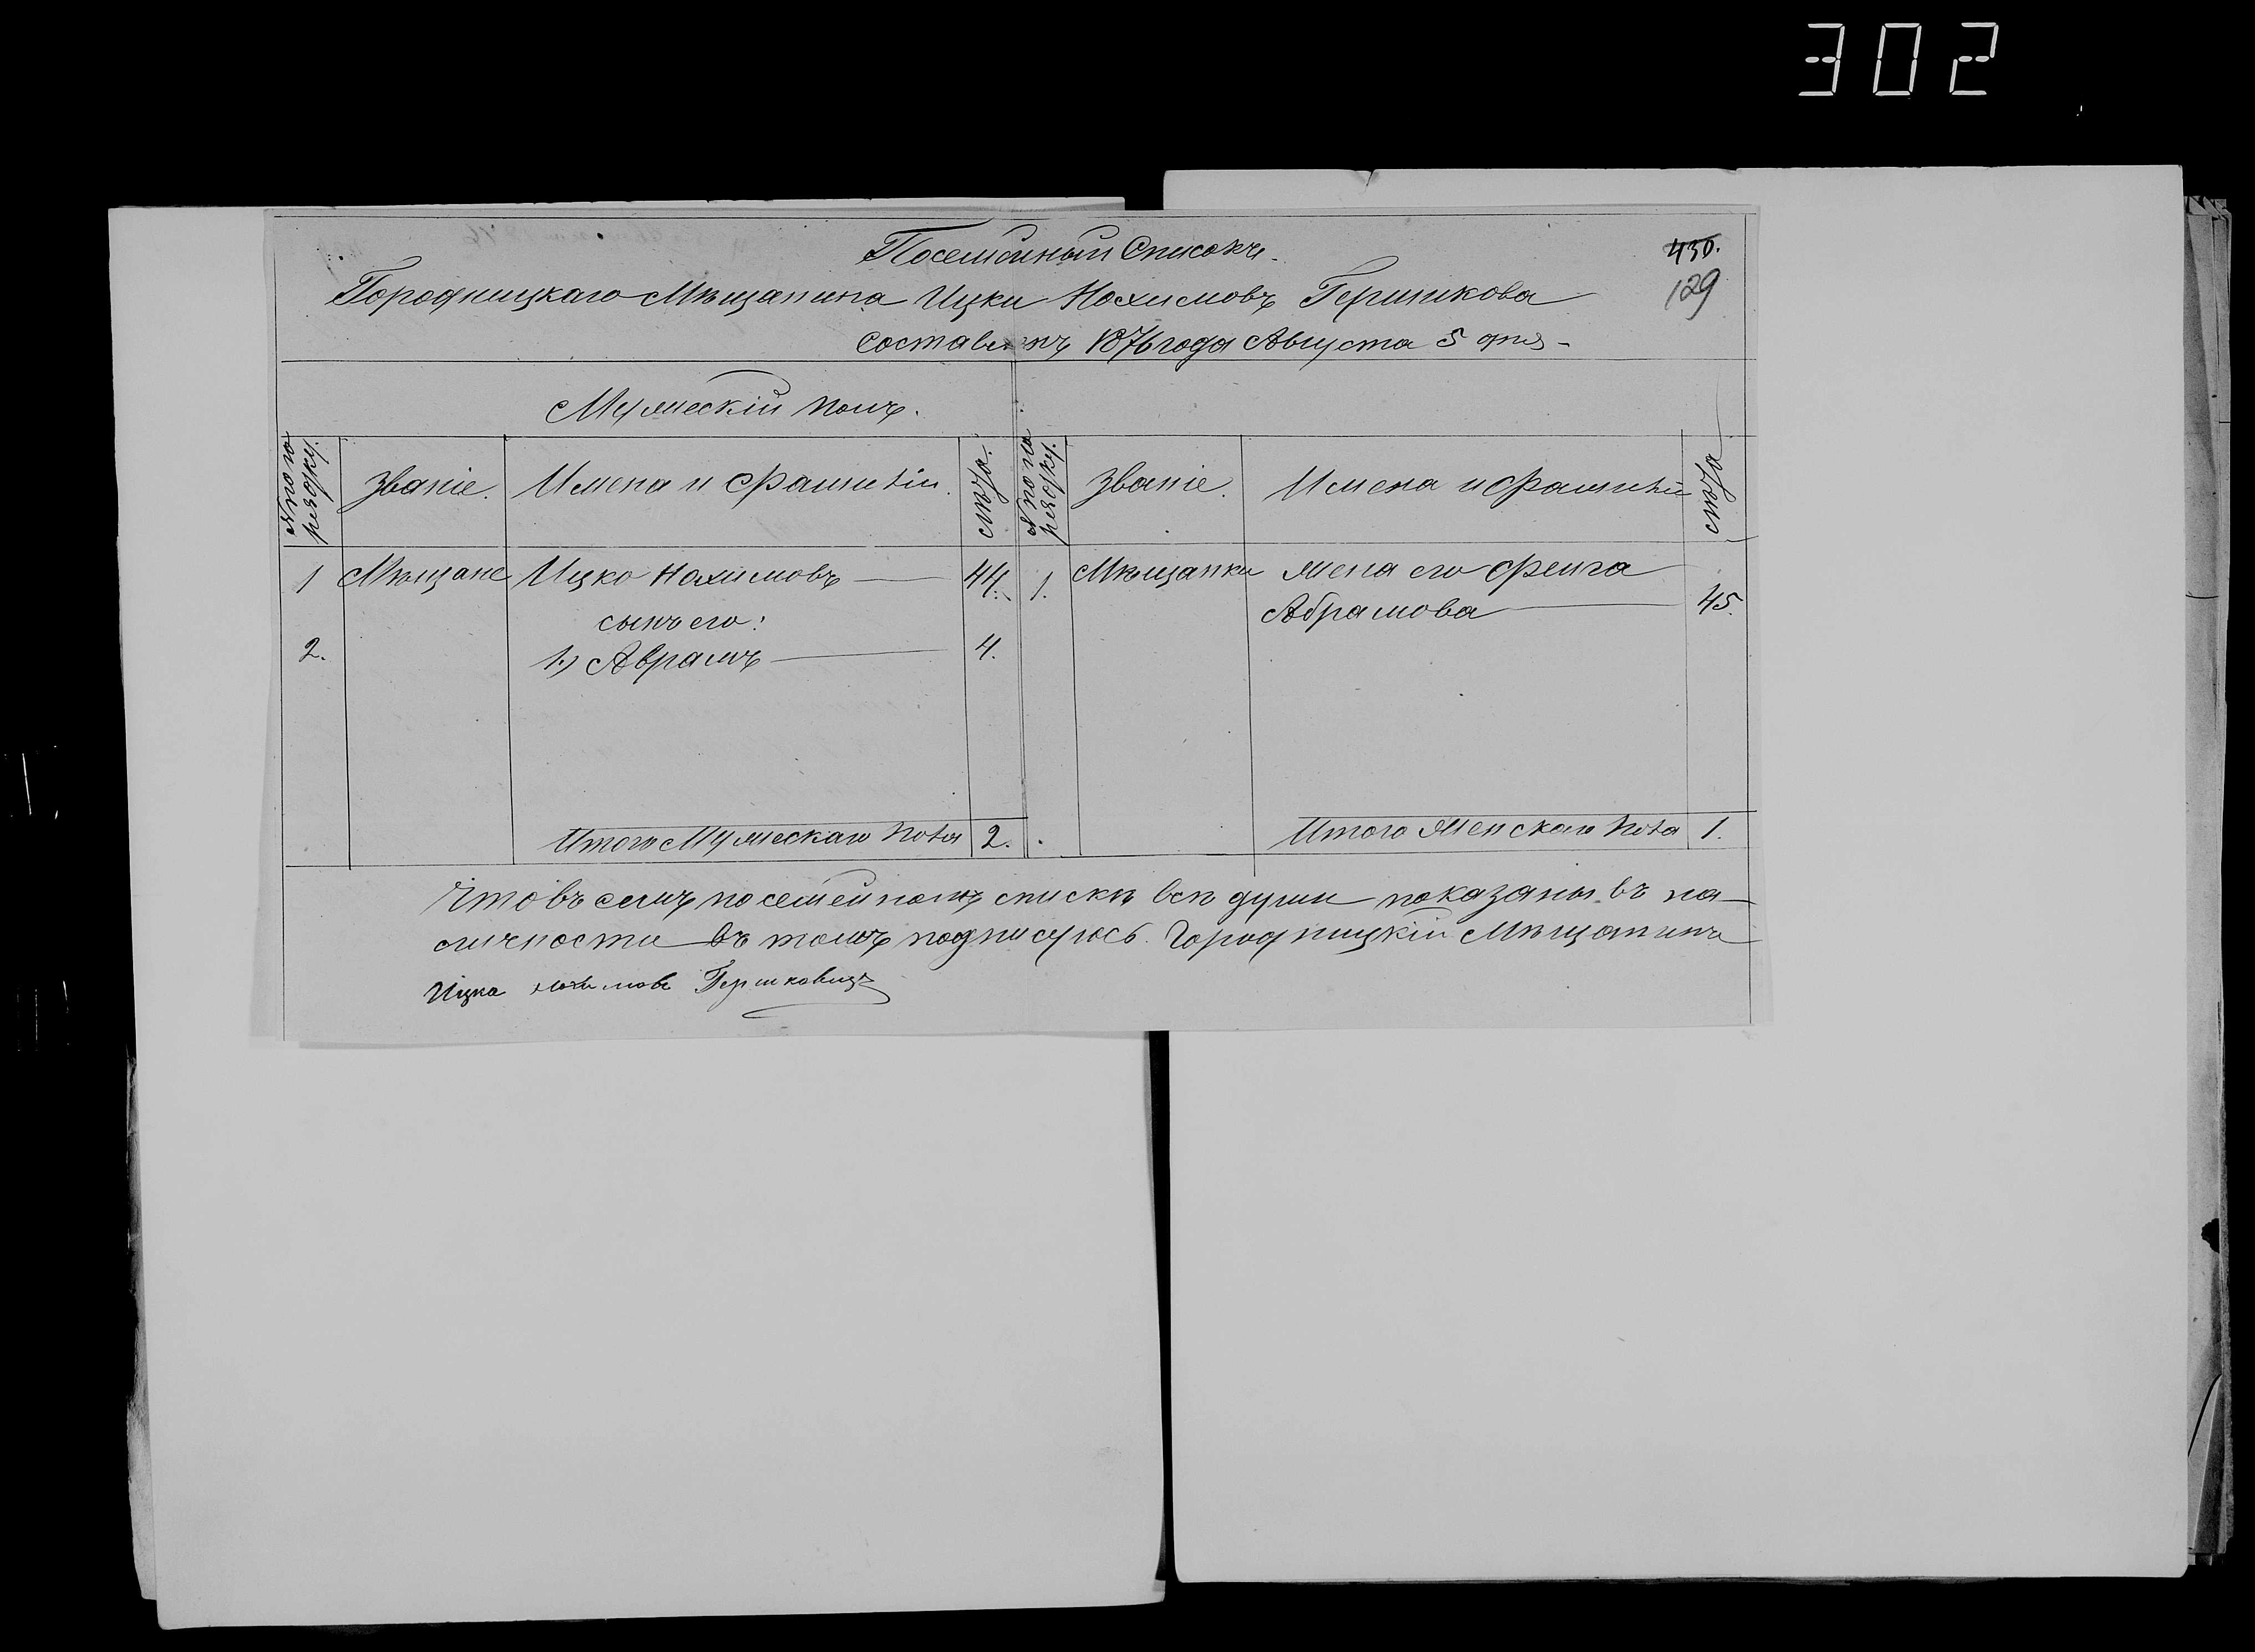 302
Посемейный Списокъ
430.
129
Городницкаго Мѣщанина Ицки Нохимовъ Гершкова
Составленъ 1876 года Августа 5 дня
Мужескій полъ.
№ по по рядку.
Званіе.
Имена и фамиліи.
лѣта.
№ по по рядку.
Званіе.
Имена и фамиліи
лѣта
1 Мѣщане Ицко Нохимовъ 44. 1. Мѣщанки жена его Фейга
сынъ его: Абрамова 45.
2. 1.) Аврамъ 4.
Итого Мужескаго пола 2. Итого Женскаго пола 1.
Что въ семъ посемейномъ спискѣ всѣ души показаны въ на-
личности въ томъ подписуюсь. Городницкій Мѣщанинъ
Ицка Гершковицъ